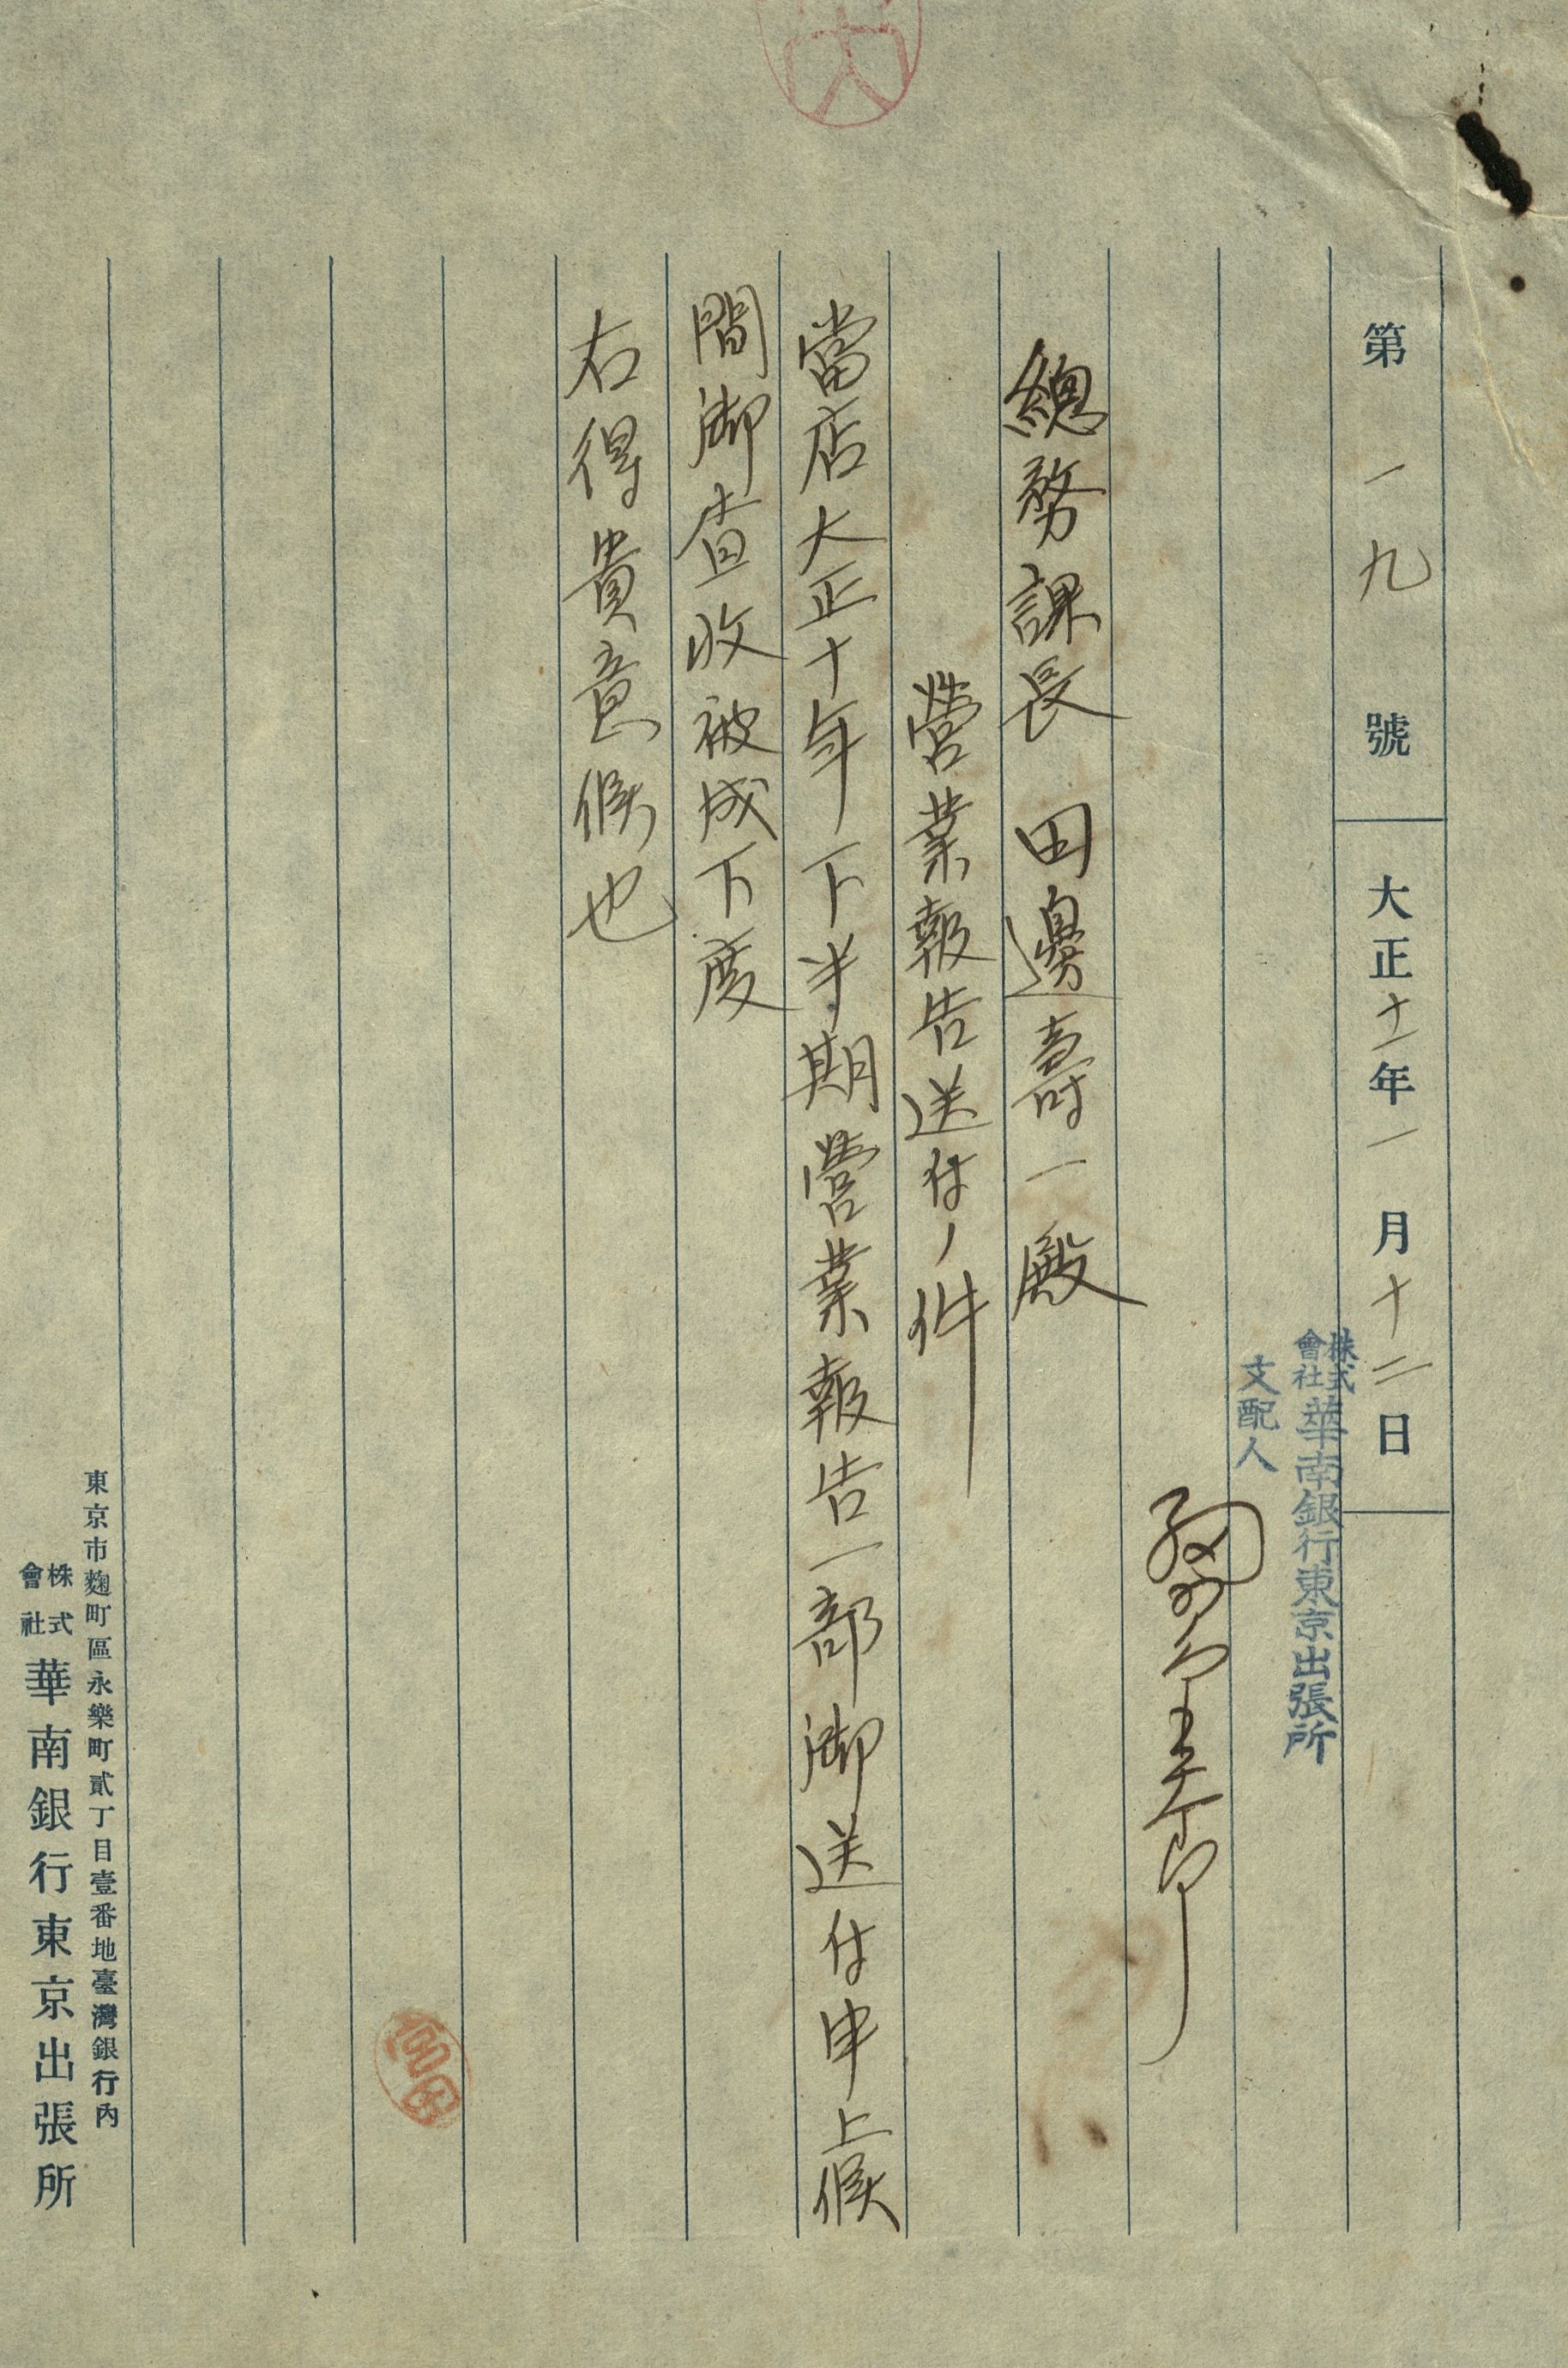 第一九號 大正十一年一月十二日
株式會社華南銀行東京出張所
支配人
總務課長 田邊壽一殿
營業報告送付ノ件
當店大正十年下半期營業報告一部御送付申上候
間御査收被成下度
右得貴意候也
東京市麴町區永樂町貳丁目壹番地臺灣銀行內
株式會社華南銀行東京出張所